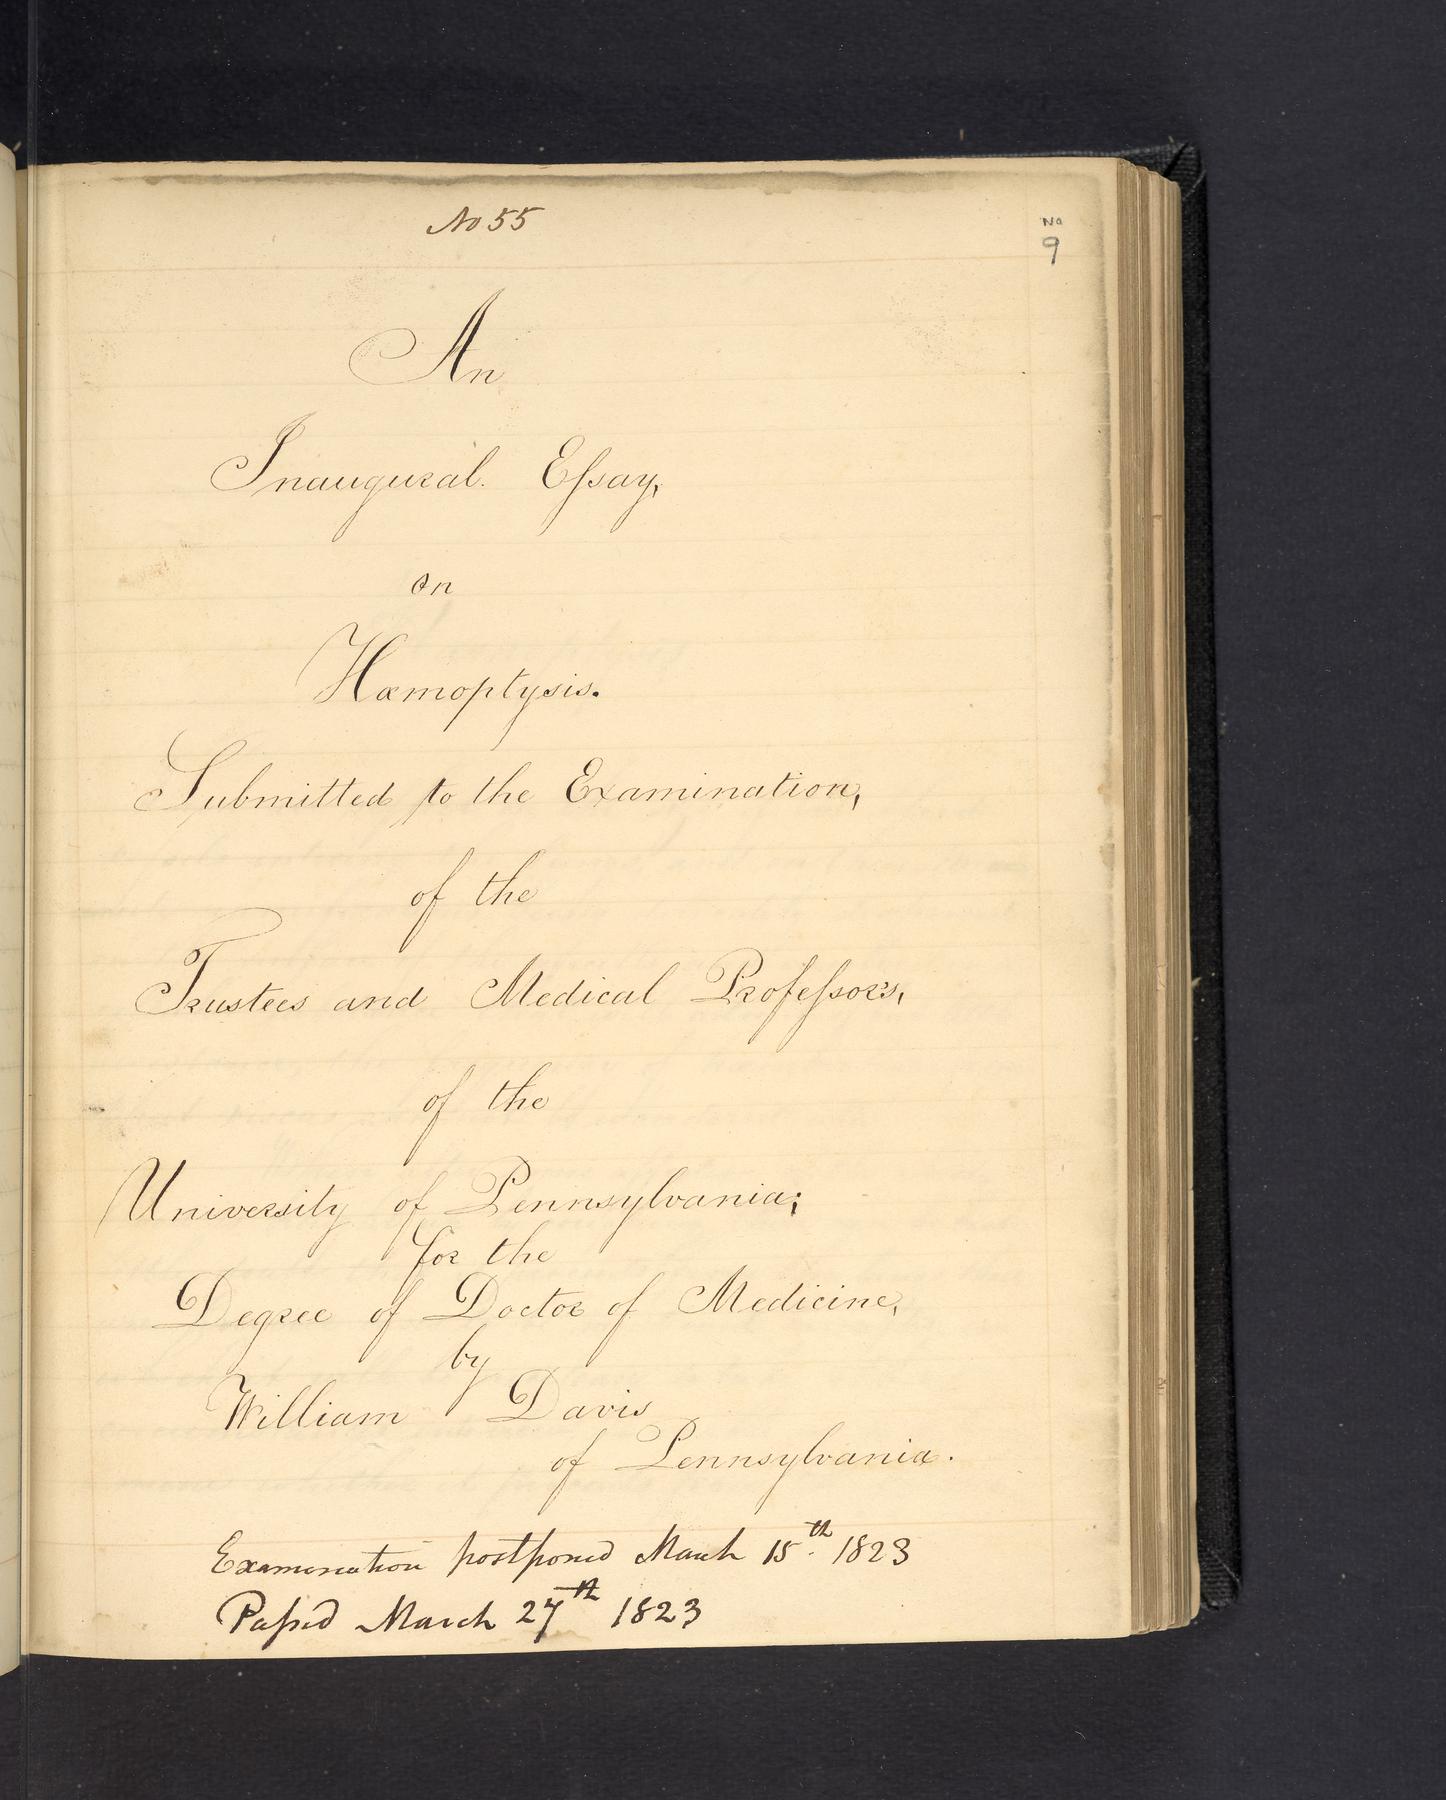 No 55
No
9
An
Inaugural Eſsay,
on
Hæmoptysis.
Submitted to the Examination,
of the
Trustees and Medical Profeſsors,
of the
University of Pennsylvania;
for the
Degree of Doctor of Medicine,
by
William Davis
of Pennsylvania.
Examination postponed March 15th. 1823
Paſsed March 27th 1823